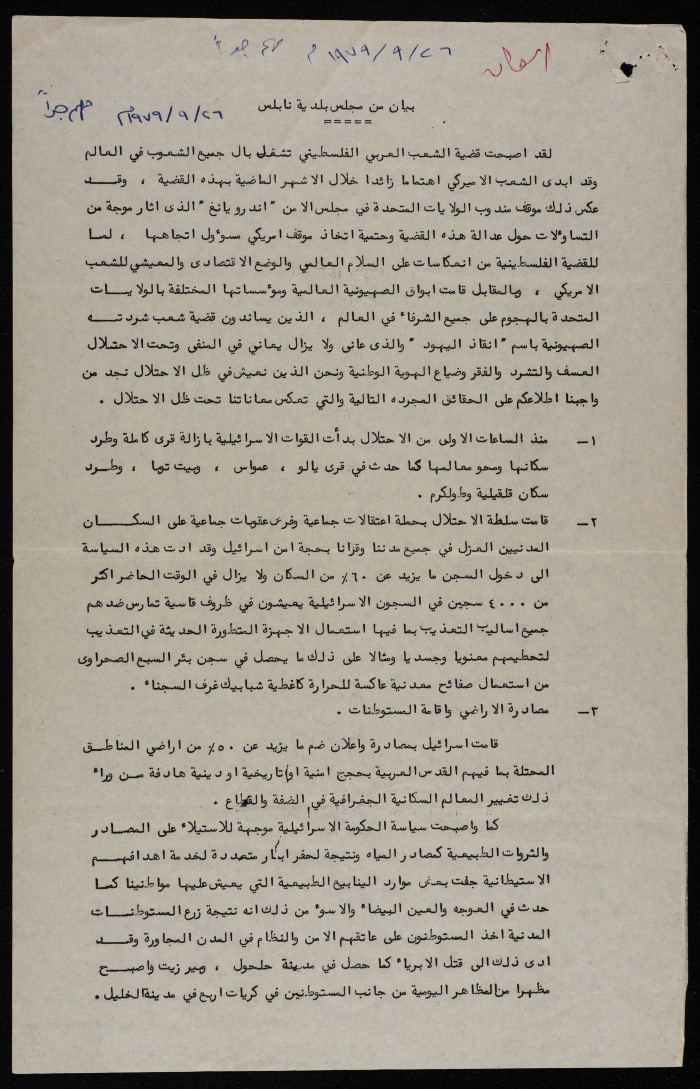 ١٩٧٩/٩/٢٦ م هام جداً
بيان من مجلس بلدية نابلس
١٩٧٩/٩/٢٦م هام جداً
لقد اصبحت قضية الشعب العربي الفلسطيني تشغل بال جميع الشعوب في العالم
وقد ابدى الشعب الاميركي اهتماما زائدا خلال الاشهر الماضية بهذه القضية ، وقد
عكس ذلك موقف مندوب الولايات المتحدة في مجلس الامن "اندرو يانغ" الذى اثار موجة من
التساؤلات حول عدالة هذه القضية وحتمية اتخاذ موقف امريكي مسؤول اتجاهها ، لما
للقضية الفلسطينية من انعكاسات على السلام العالمي والوضع الاقتصادى والمعيشي للشعب
الامريكي ، وبالمقابل قامت ابواق الصهيونية العالمية ومؤسساتها المختلفة بالولايات
المتحدة بالهجوم على جميع الشرفاء في العالم ، الذين يساندون قضية شعب شردته
الصهيونية باسم "انقاذ اليهود" والذى عانى ولا يزال يعاني في المنفى وتحت الاحتلال
العسف والتشرد والفقر وضياع الهوية الوطنية ونحن الذين نعيش في ظل الاحتلال نجد من
واجبنا اطلاعكم على الحقائق المجرده التالية والتي تعكس معاناتنا تحت ظل الاحتلال .
١— منذ الساعات الاولى من الاحتلال بدأت القوات الاسرائيلية بازالة قرى كاملة وطرد
سكانها ومحو معالمها كما حدث في قرى يالو ، عمواس ، وبيت نوبا ، وطرد
سكان قلقيلية وطولكرم .
٢— قامت سلطة الاحتلال بحملة اعتقالات جماعية وفرض عقوبات جماعية على السكان
المدنيين العزل في جميع مدننا وقرانا بحجة امن اسرائيل وقد ادت هذه السياسة
الى دخول السجن ما يزيد عن ٦٠٪ من السكان ولا يزال في الوقت الحاضر اكثر
من ٤٠٠٠ سجين في السجون الاسرائيلية يعيشون في ظروف قاسية تمارس ضدهم
جميع اساليب التعذيب بما فيها استعمال الاجهزة المتطورة الحديثة في التعذيب
لتحطيمهم معنويا وجسديا ومثالا على ذلك ما يحصل في سجن بئر السبع الصحراوى
من استعمال صفائح معدنية عاكسة للحرارة كاغطية شبابيك غرف السجناء .
٣— مصادرة الاراضي واقامة المستوطنات .
قامت اسرائيل بمصادرة واعلان ضم ما يزيد عن ٥٠٪ من اراضي المناطق
المحتلة بما فيهم القدس العربية بحجج امنية او تاريخية او دينية هادفة من وراء
ذلك تغيير المعالم السكانية الجغرافية في الضفة والقطاع .
كما واصبحت سياسة الحكومة الاسرائيلية موجهة للاستيلاء على المصادر
والثروات الطبيعية كمصادر المياه ونتيجة لحفر ابآر متعددة لخدمة اهدافهم
الاستيطانية جفت بعض موارد الينابيع الطبيعية التي يعيش عليها مواطنينا كما
حدث في العوجه والعين البيضاء والاسوء من ذلك انه نتيجة زرع المستوطنات
المدنية اخذ المستوطنون على عاتقهم الامن والنظام في المدن المجاورة وقد
ادى ذلك الى قتل الابرياء كما حصل في مدينة حلحول ، وبير زيت واصبح
مظهرا من المظاهر اليومية من جانب المستوطنين في كريات اربع في مدينة الخليل .